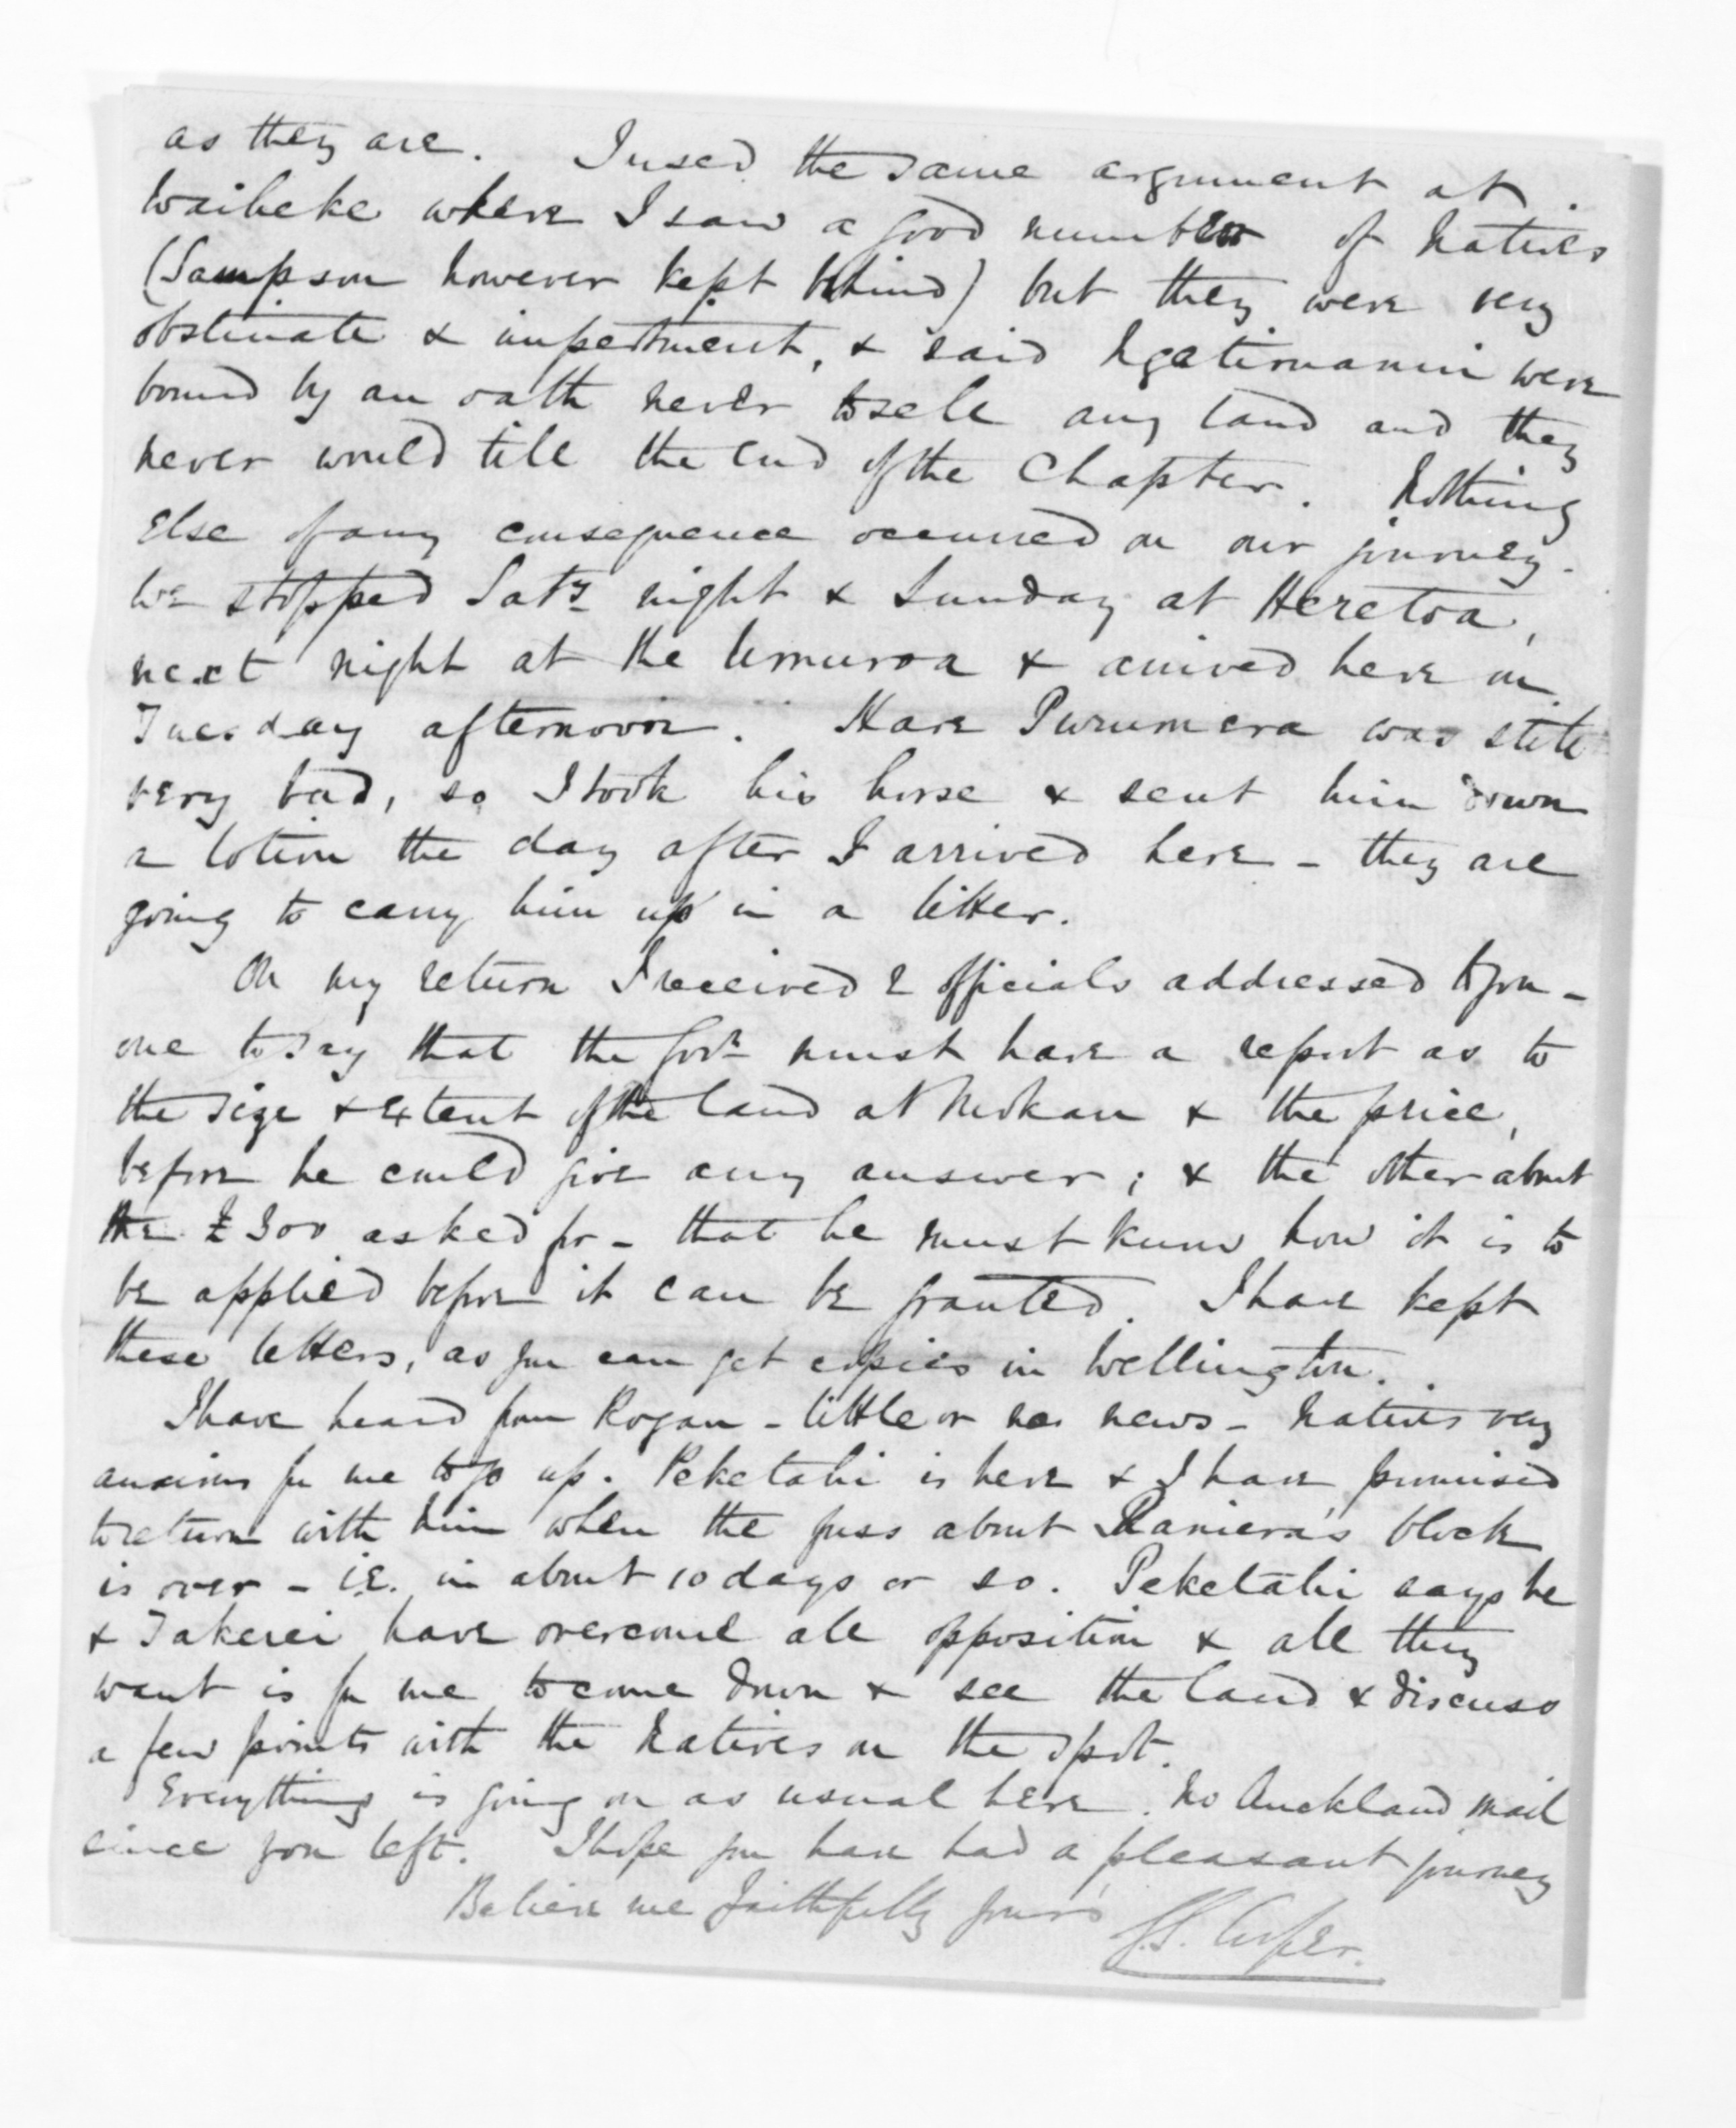 as they are. I used the same argument at
Waiheke where I saw a good number of Natives
(Sampson however kept behind) but they were very
obstinate & impertinent, & said Ngatiruanui were
bound by an oath never to sell any land and they
never would till the end of the Chapter. Nothing
else of any consequence occurred on our journey.
We stopped Saty night & Sunday at Heretoa,
next night at the Umuroa & arrived here on
Tuesday afternoon. Hare Purumera was still
very bad, so I took his horse & sent him down
a lotion the day after I arrived here - they are
going to carry him up in a litter.
On my return I received 2 officials addressed to you -
one to say that the Govr must have a report as to
the size & extent of the land at Mokau & the price,
before he could give any answer; & the other about
the £300 asked for - that he must know how it is to
be applied before it can be granted. I have kept
these letters, as you can get copies in Wellington.
I have heard from Rogan - little or no news - Natives very
anxious for me to go up. Peketahi is here & I have promised
to return with him when the fuss about Raniera's block
is over - i.e. in about 10 days or so. Peketahi says he
& Takerei have overcome all opposition & all they
want is for me to come down & see the land & discuss
a few points with the Natives on the spot.
Everything is going on as usual here. No Auckland mail
since you left. I hope you have had a pleasant journey
Believe me faithfully yours
G.S. Cooper.